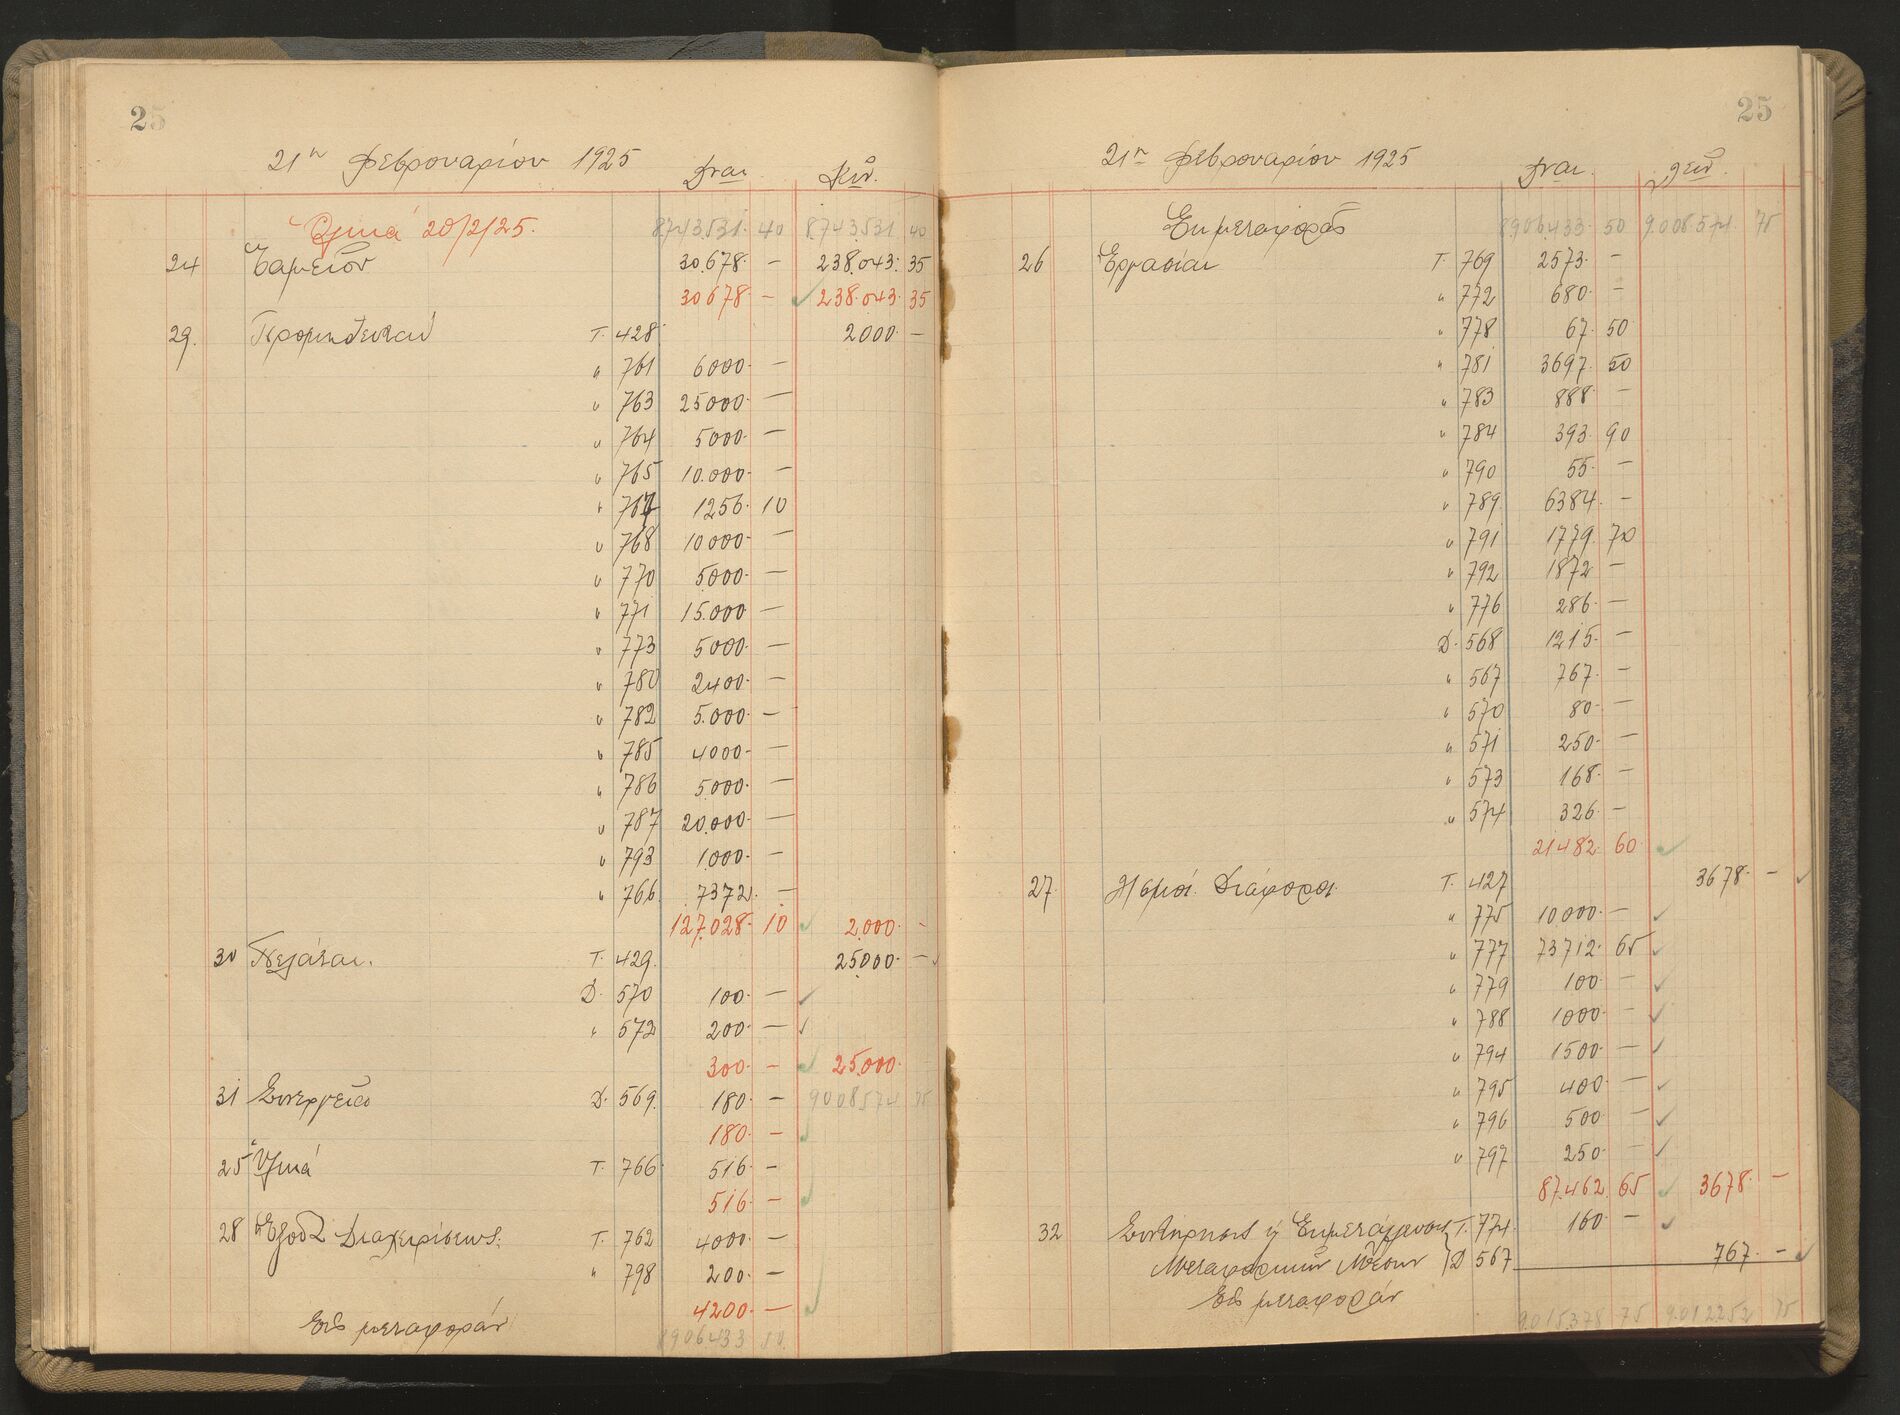 25
21η Φεβρουαρίου 1925 Δραι. Λεπ.
Υλικά 20/2/25. 8743.531. 40 8.743.531 40
24 Ταμείον 30.678. — 238.043. 35
30678. — 238.043. 35
29. Προμηθευταί Τ. 428 2000. —
" 761 6000. —
" 763 25000. —
" 764 5000. —
" 765 10.000. —
" 767 1256. 10
" 768 10000. —
" 770 5000. —
" 771 15.000 —
" 773 5000. —
" 780 2400. —
" 782 5.000. —
" 785 4000. —
" 786 5.000. —
" 787 20.000. —
" 793 1.000. —
" 766 7372. —
127.028. 10 2.000. —
30 Πελάται. Τ. 429. 25000. —
Δ. 570 100. —
" 572 200. —
300. — 25.000.
31 Συνεργείον Δ. 569. 180. — 9008574 75
180. —
25 Υλικά Τ. 766 516. —
516. —
28 Έξοδα Διαχειρίσεως. Τ. 762 4000. —
" 798 200. —
4200. —
Εις μεταφοράν 8906433 50
25
21η Φεβρουαρίου 1925 Δραι. Λεπ.
Εκ μεταφοράς 8906.433. 50 9.008.574. 75
26 Εργασίαι Τ. 769 2573. —
" 772 680. —
" 778 67. 50
" 781 3697. 50
" 783 888. —
" 784 393. 90
" 790 55. —
" 789. 6384. —
" 791 1779. 70
" 792 1872 —
" 776 286. —
Δ. 568 1215. —
" 567 767. —
" 570 80. —
" 571 250. —
" 573 168. —
" 574 326. —
21.482. 60
27. Διάφοροι. Τ. 427 3678. —
" 775 10.000. —
" 777 73712. 65
" 779 100. —
" 788 1000. —
" 794 1500. —
" 795 400. —
" 796 500. —
" 797 250. —
87.462. 65 3678. —
32 Συντήρησις & Εκμετάλλευσις Τ. 774. 160 —
Μεταφορικών Μέσων Δ 567 767. —
Εις μεταφοράν
9.015.378 75 9.012252 75